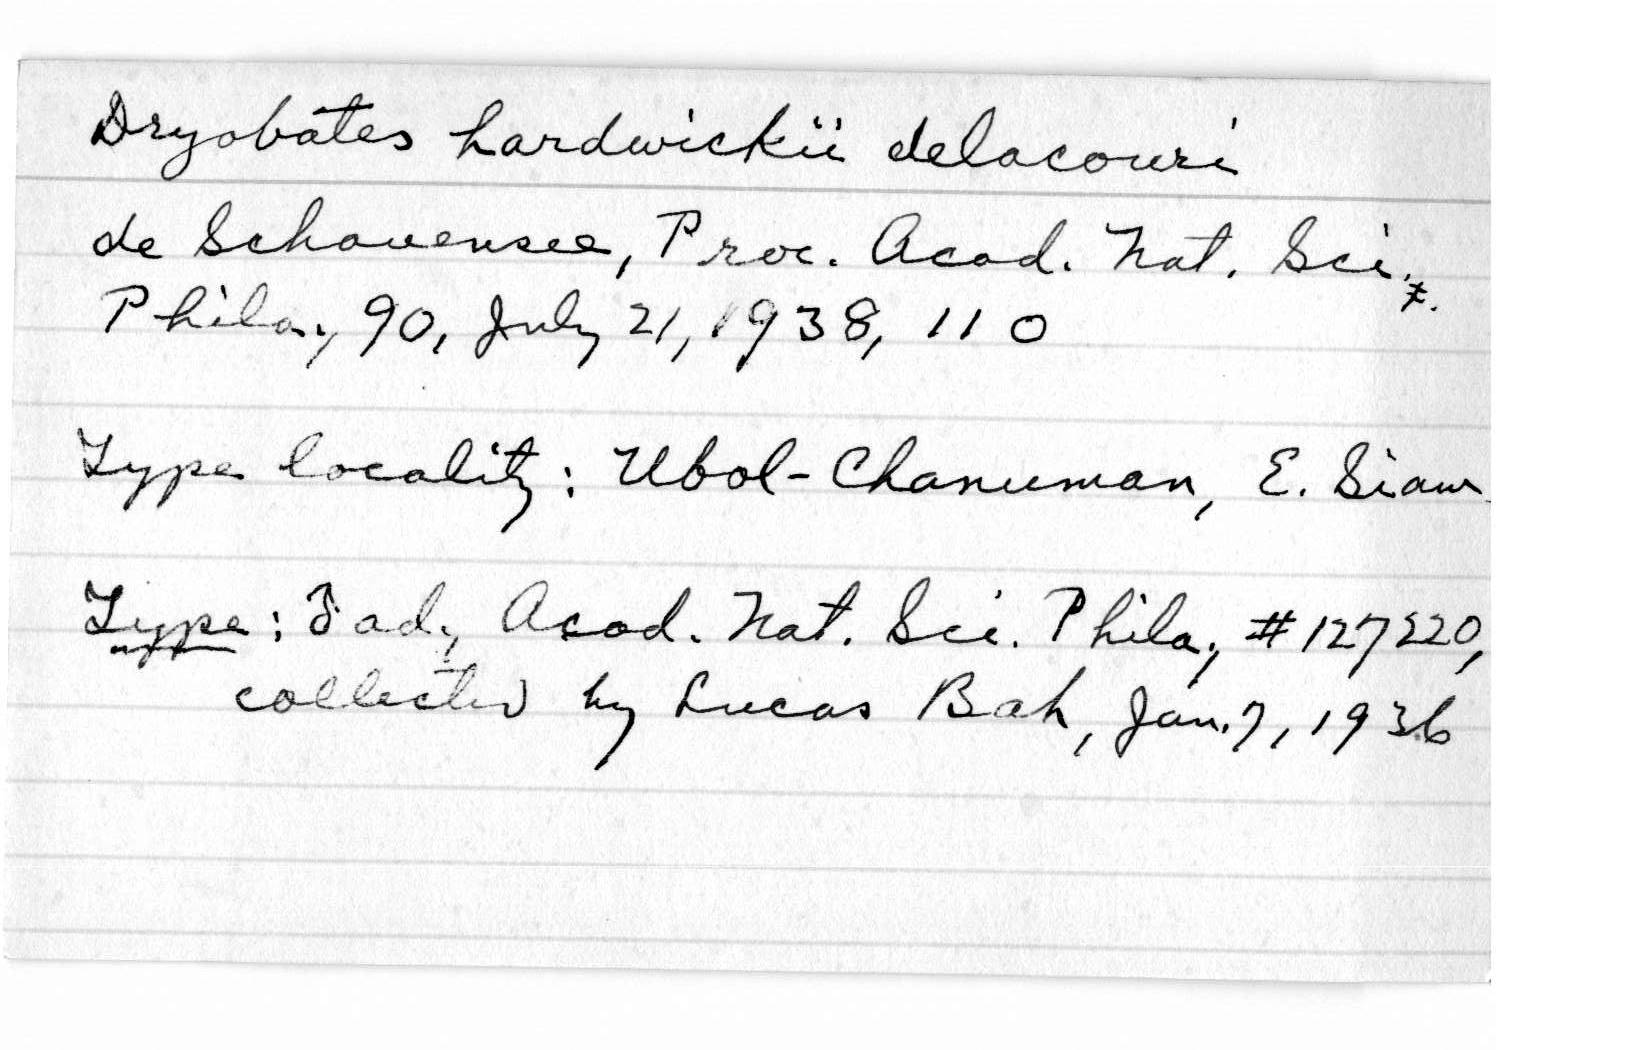 Dryobates hardwickii delacouri
de Schauensee, Proc. Acad. Nat. Sci.
Phila., 90, July 21, 1938, 110
Type locality: Ubol-Chanuman, E. Siam
Type: ♂ ad., Acad. Nat. Sci. Phila., #127220,
collected by Lucas Bah, Jan. 7, 1936